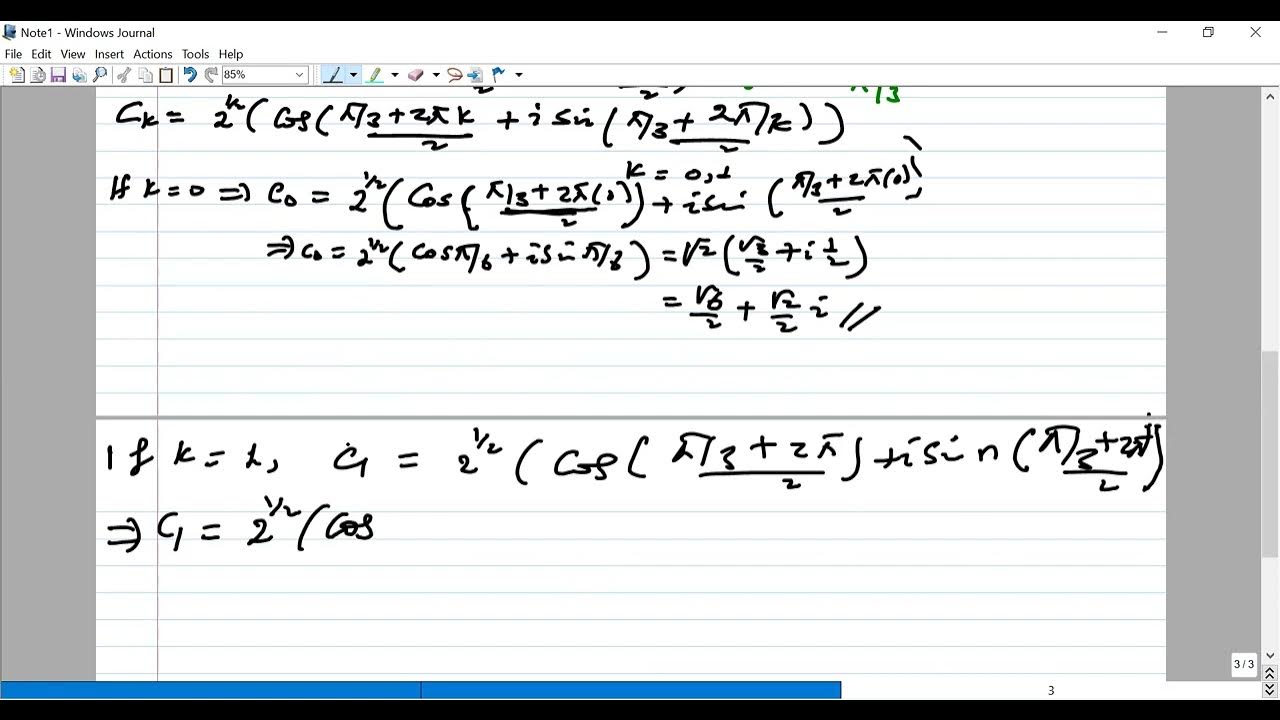 Note1 - Windows Journal
File Edit View Insert Actions Tools Help
85%
π/3
C_k = 2^½ (Cos(π/3 + 2πk/2 + i sin(π/3 + 2πk/2))
k = 0,1
If k = 0 ⇒ C_0 = 2^1/2 (Cos(π/3 + 2π(0)/2) + i sin(π/3 + 2π(0)/2))
⇒ C_0 = 2^1/2 (cos π/6 + i sin π/6) = √2 (√3/2 + i 1/2)
= √6/2 + √2/2 i //
If k = 1, C_1 = 2^1/2 (Cos(π/3 + 2π/2) + i sin(π/3 + 2π/2)
⇒ C_1 = 2^1/2 (Cos
3 / 3
3